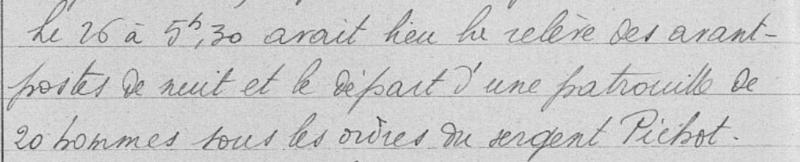 Le 26 à 5h,30 avait lieu la relève des avant-
postes de nuit et le départ d'une patrouille de
20 hommes sous les ordres du sergent Pichot.